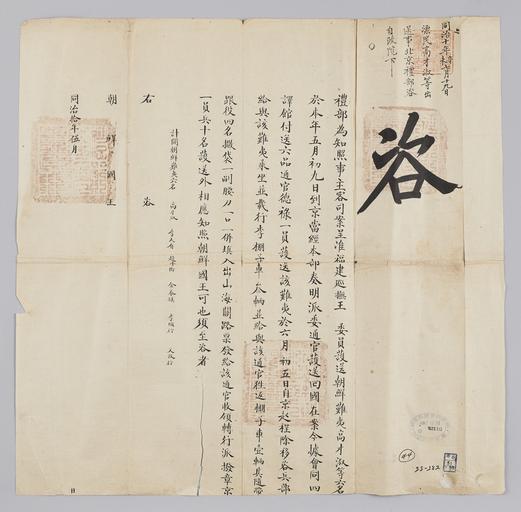 同治十年辛未七月十九日
漂民高才淑等出
送事北京禮部咨
自政院下
咨
禮部為知照事主客司案呈准福建巡撫王　委員護送朝鮮難夷高才淑等六名
於本年五月初九日到京當經本部奏明派委通官護送回國在案今據會同四
譯館付送六品通官德祿一員護送該難夷於六月初五日自京起程除移咨兵部
給與該難夷乘坐並載行李棚子車　輛並給與該通官往返棚子車壹輛其隨帶
跟役四名撒袋一副腰刀一口一併填入出山海關路票發給該通官收領轉行派撥章京
一員兵十名護送外相應知照朝鮮國王可也須至咨者
計開朝鮮難夷六名　高才淑
右　咨
朝鮮國王
同治拾年伍月　日
44
33-182